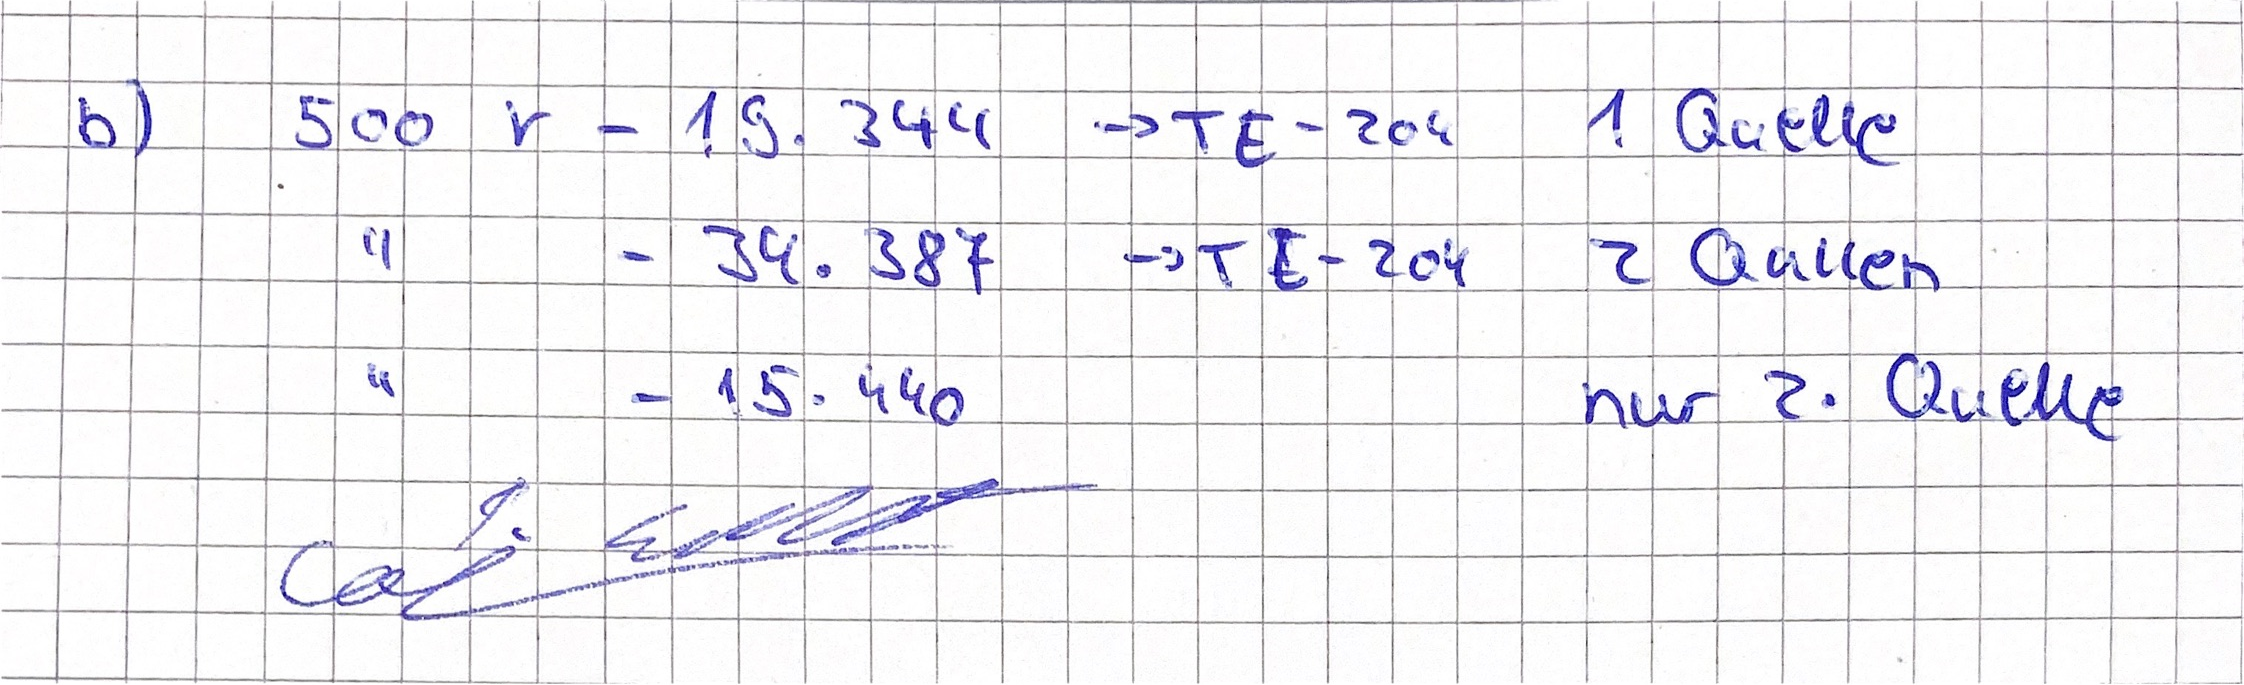 b) 500 V - 19.344 → TE-204 1 Quelle
" - 34.387 → TE-204 2 Quellen
" - 15.440 nur 2. Quelle